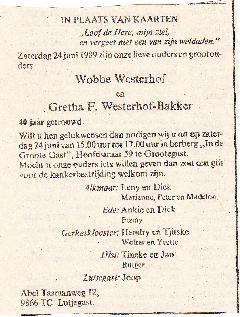 IN PLAATS VAN KAARTEN
„Loof de Here, mijn ziel,
en vergeet niet een van zijn weldaden."
Zaterdag 24 juni 1989 zijn onze lieve ouders en grootou-
ders
Wobbe Westerhof
en
Gretha F. Westerhof-Bakker
40 jaar getrouwd.
Wilt u hen gelukwensen dan nodigen wij u uit op zater-
dag 24 juni van 15.00 uur tot 17.00 uur in herberg „In de
Groote Gast", Hoofdstraat 59 te Grootegast.
Mocht u onze ouders iets willen geven dan zou een gift
voor de kankerbestrijding welkom zijn.
Alkmaar: Leny en Dick
Marianne, Peter en Madelon
Ede: Ankie en Dick
Fanny
Gerkesklooster: Hendry en Tjitske
Wolter en Yvette
Tineke en Jan
Rutger
Zwitserland: Joop
Abel Tasmanweg 12,
9866 TC Lutjegast